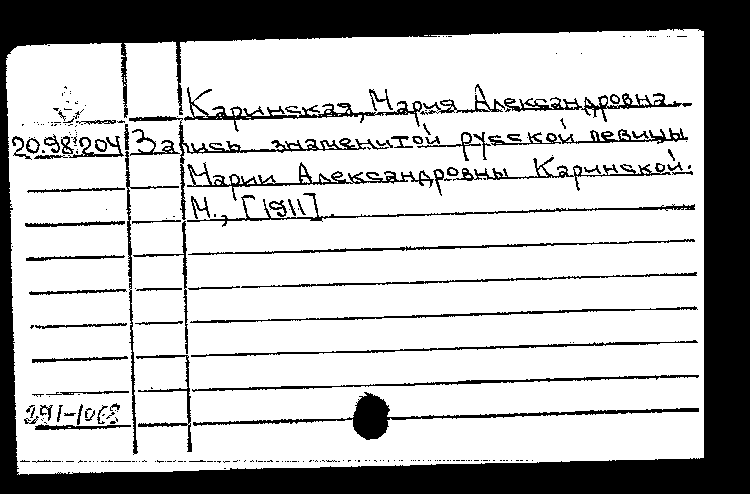 Каринская, Мария Александровна.
20.98.204 Запись знаменитой русской певицы
Марии Александровны Каринской.
М., [1911].
291-1068